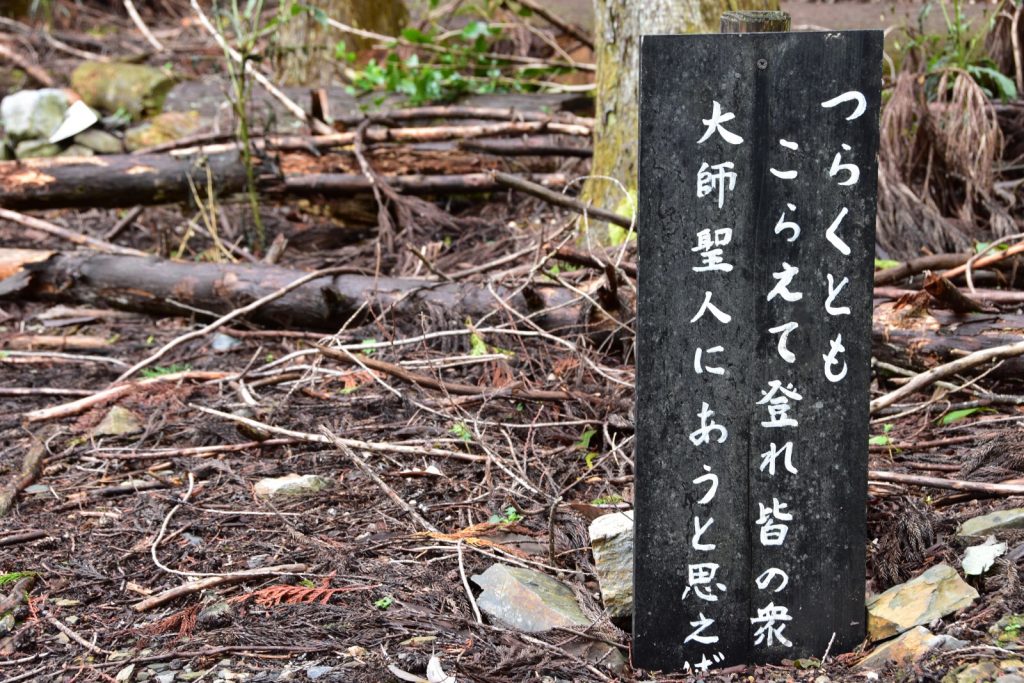 つらくとも
こらえて登れ皆の衆
大師聖人にあうと思えば